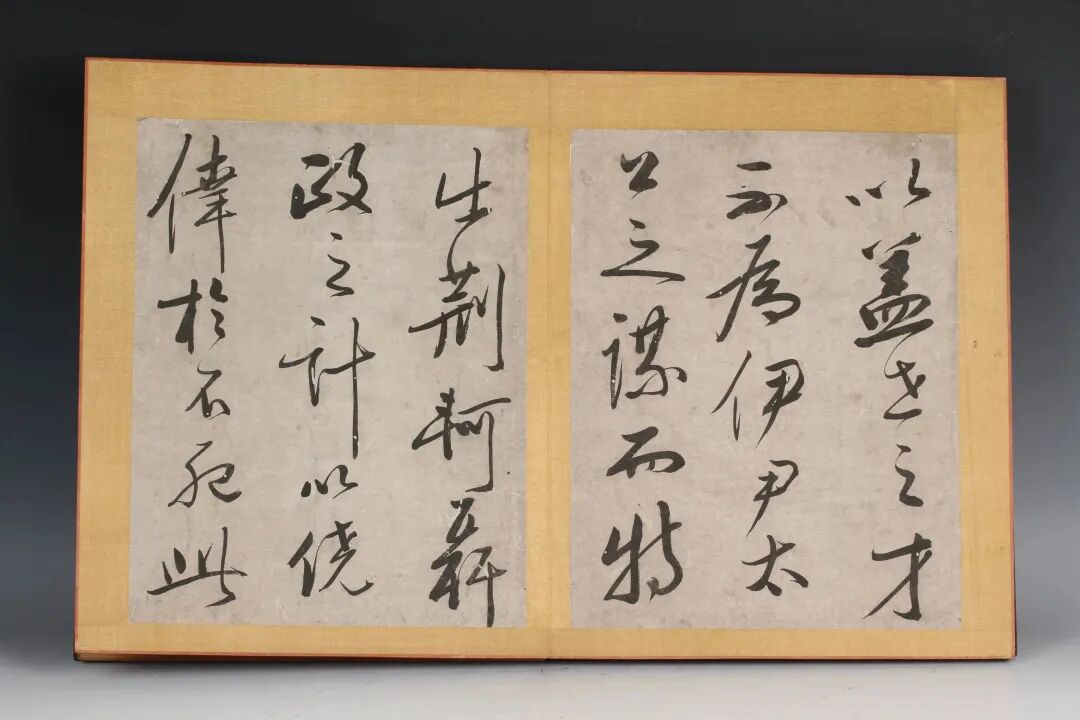 以蓋世之才
不為伊尹太
公之謀而特
出荆軻聶
政之計以僥
倖於不死此